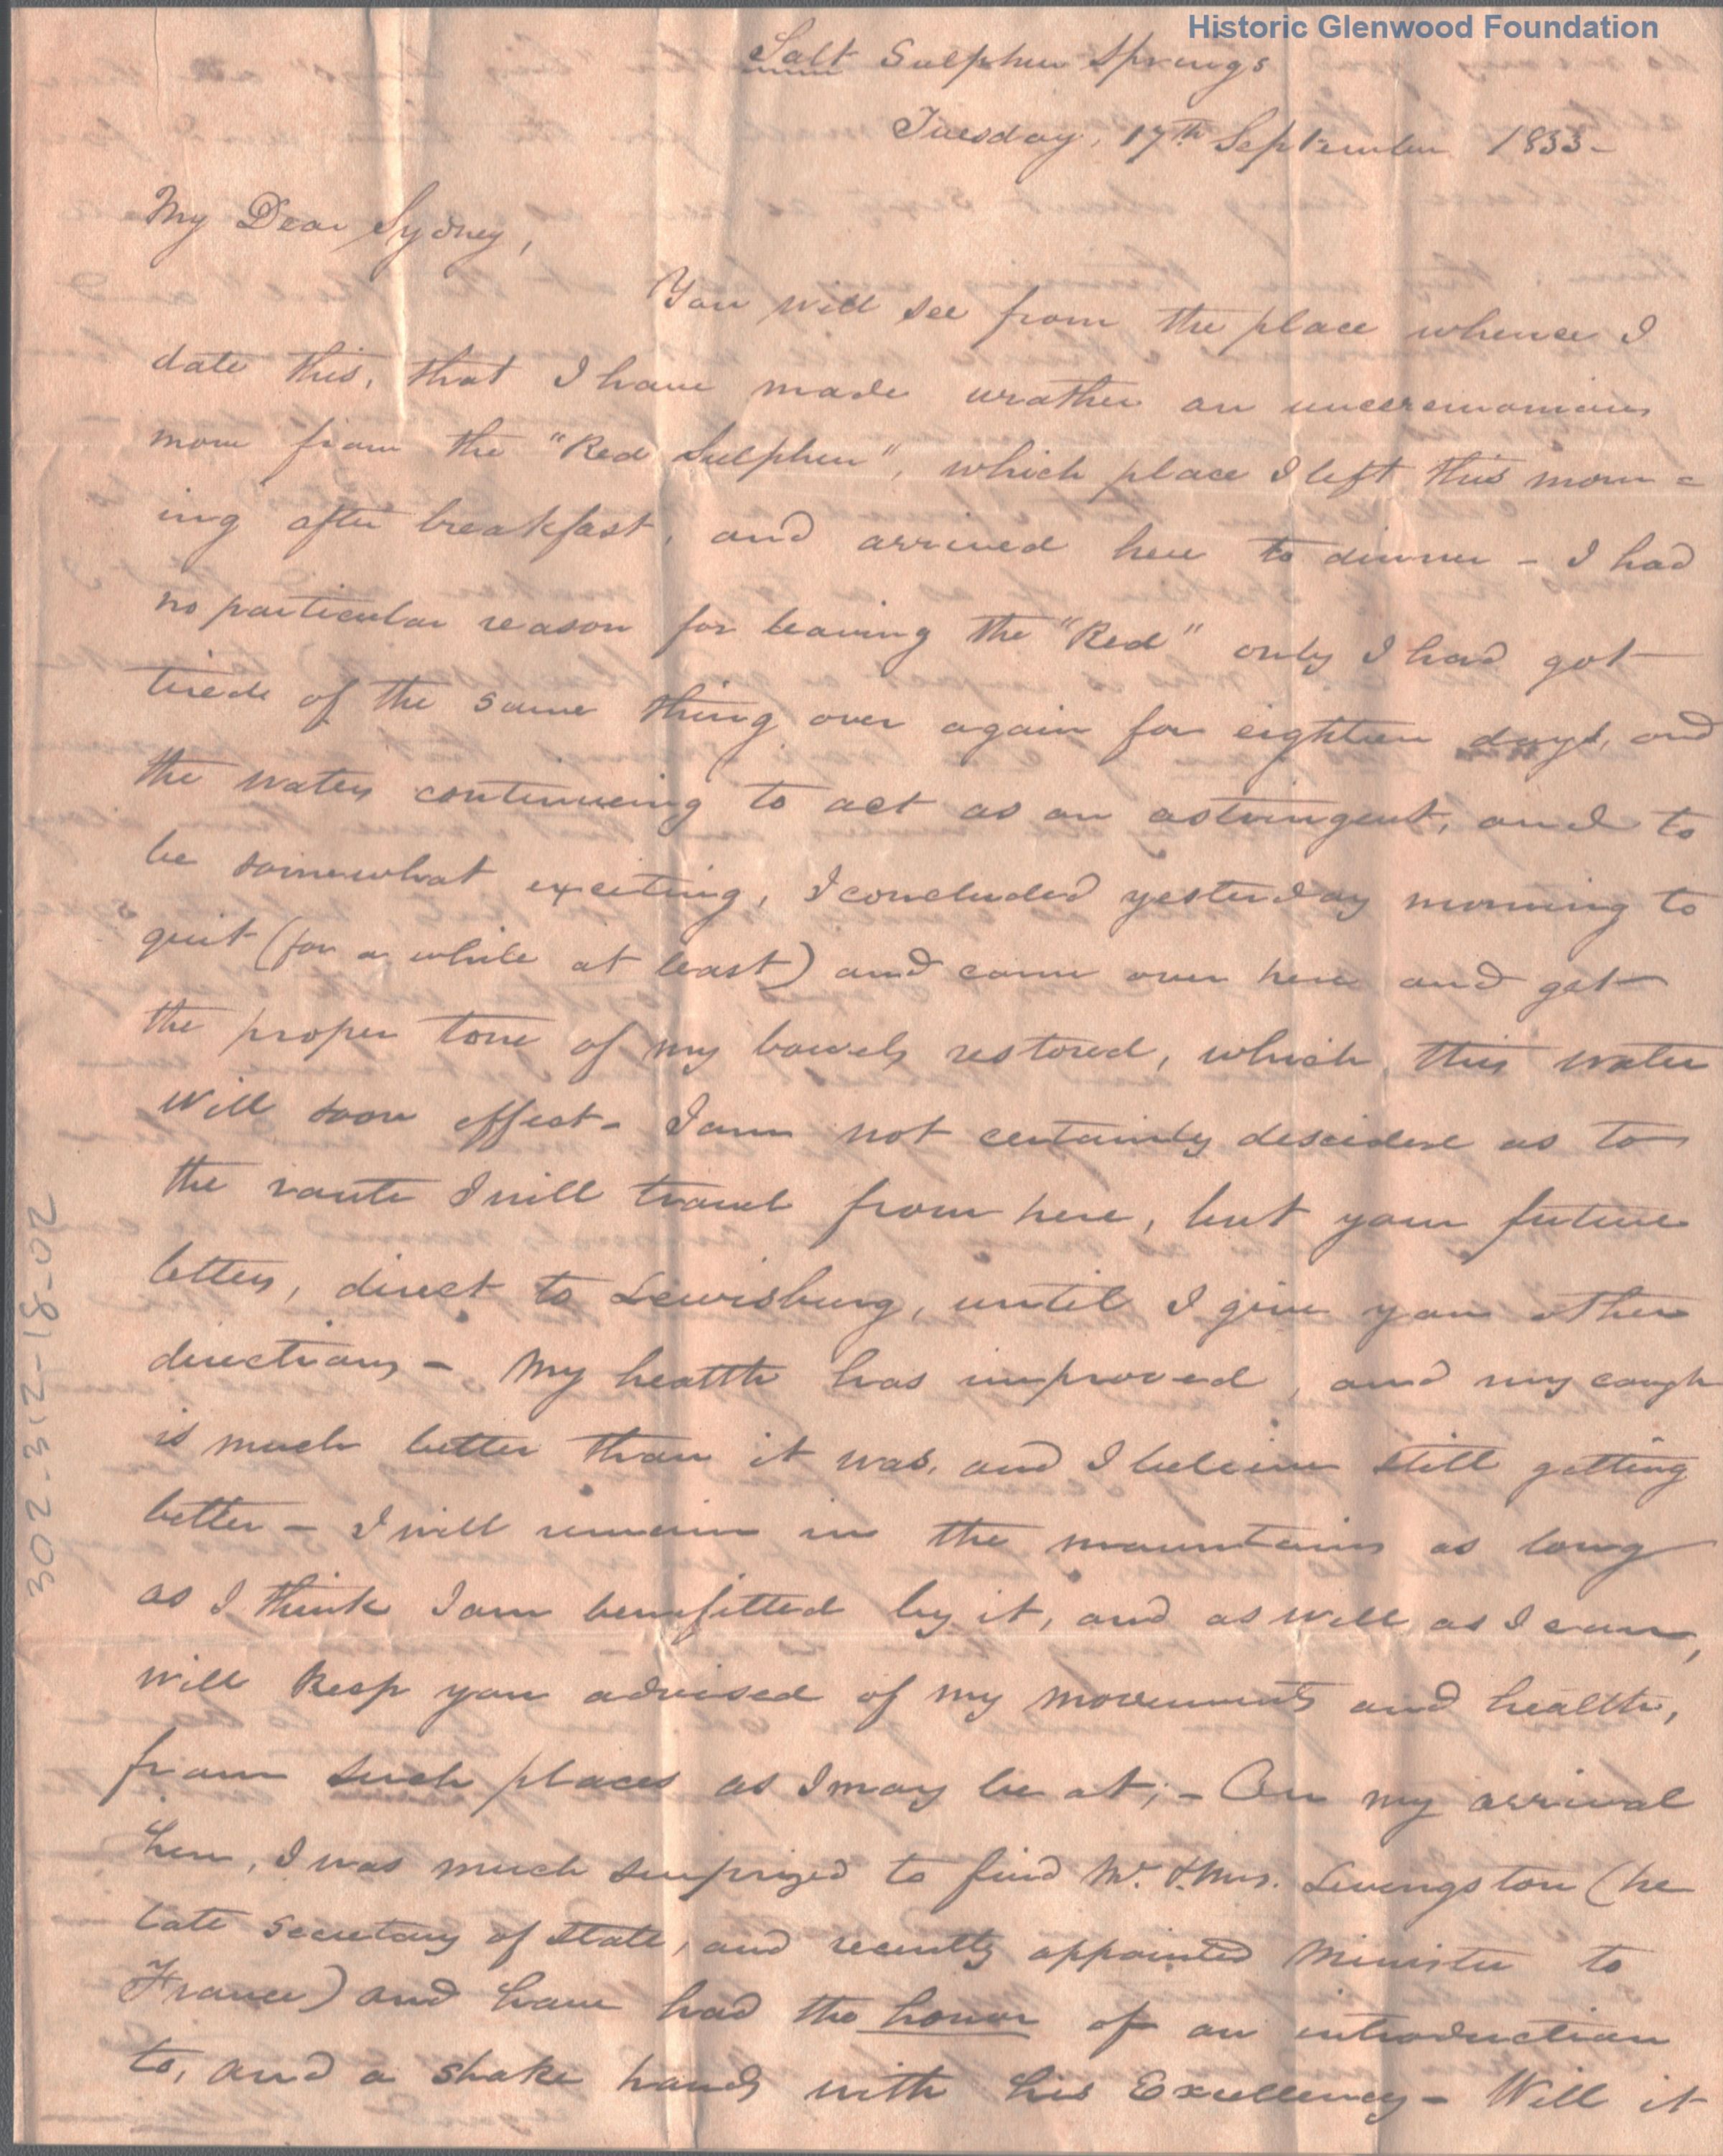 Historic Glenwood Foundation
Salt Sulphur Springs
Tuesday, 17th September 1833-
My Dear Sydney,
You will see from the place whence I
date this, that I have made wrather an unceremonious
move from the "Red Sulphur", which place I left this morn=
ing after breakfast, and arrived here to dinner - I had
no particular reason for leaving the "Red" only I had got
tired of the same thing over again for eighteen days, and
the waters continueing to act as an astringent, and to
be somewhat exciting, I concluded yesterday morning to
quit (for a while at least) and come over here and get
the proper tone of my bowels restored, which this water
will soon effect - I am not certainly descided as to
the route I will travel from here, but your future
letters, direct to Lewisburg, until I give you other
directions - My health has improved, and my cough
is much better than it was, and I believe still getting
better - I will remain in the mountains as long
as I think I am benefitted by it, and as well as I can,
will keep you advised of my movements and health,
from such places as I may be at; - On my arrival
here, I was much surprized to find Mr. & Mrs. Livingston (he
late secretary of State, and recently appointed Minister to
France) and have had the honor of an introduction
to, and a shake hands with his Excellency - Will it
302-312-18-02